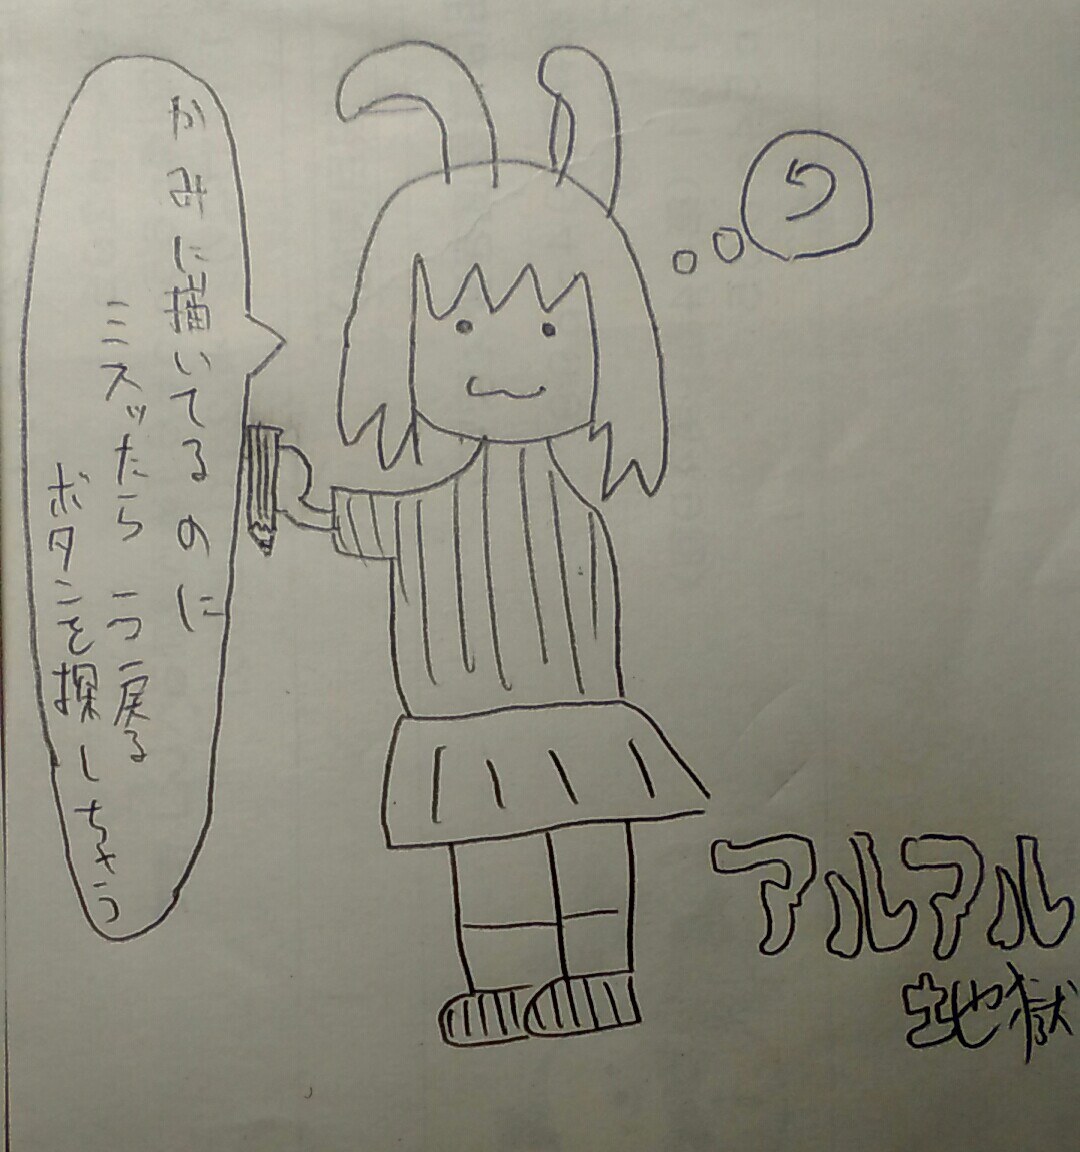 かみに描いてるのに
ミスッたら一つ戻る
ボタンを探しちゃう
アルアル
地獄